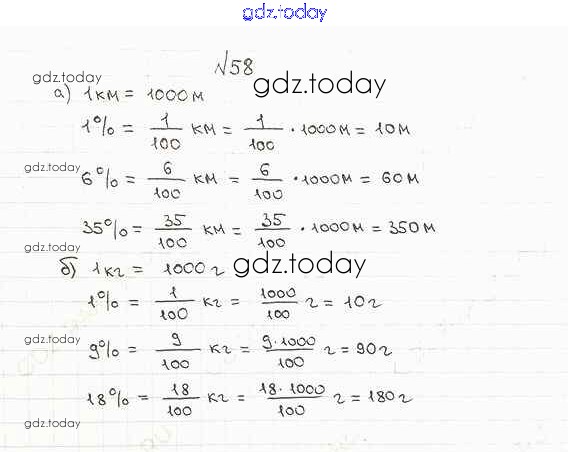 gdz.today
№58
gdz.today gdz.today
а) 1км = 1000м
1% = 1/100 км = 1/100 · 1000м = 10м
gdz.today
6% = 6/100 км = 6/100 · 1000м = 60м
35% = 35/100 км = 35/100 · 1000м = 350м
gdz.today
б) 1кг = 1000г gdz.today
1% = 1/100 кг = 1000/100 г = 10г
gdz.today
9% = 9/100 кг = 9·1000/100 г = 90г
18% = 18/100 кг = 18·1000/100 г = 180г
gdz.today